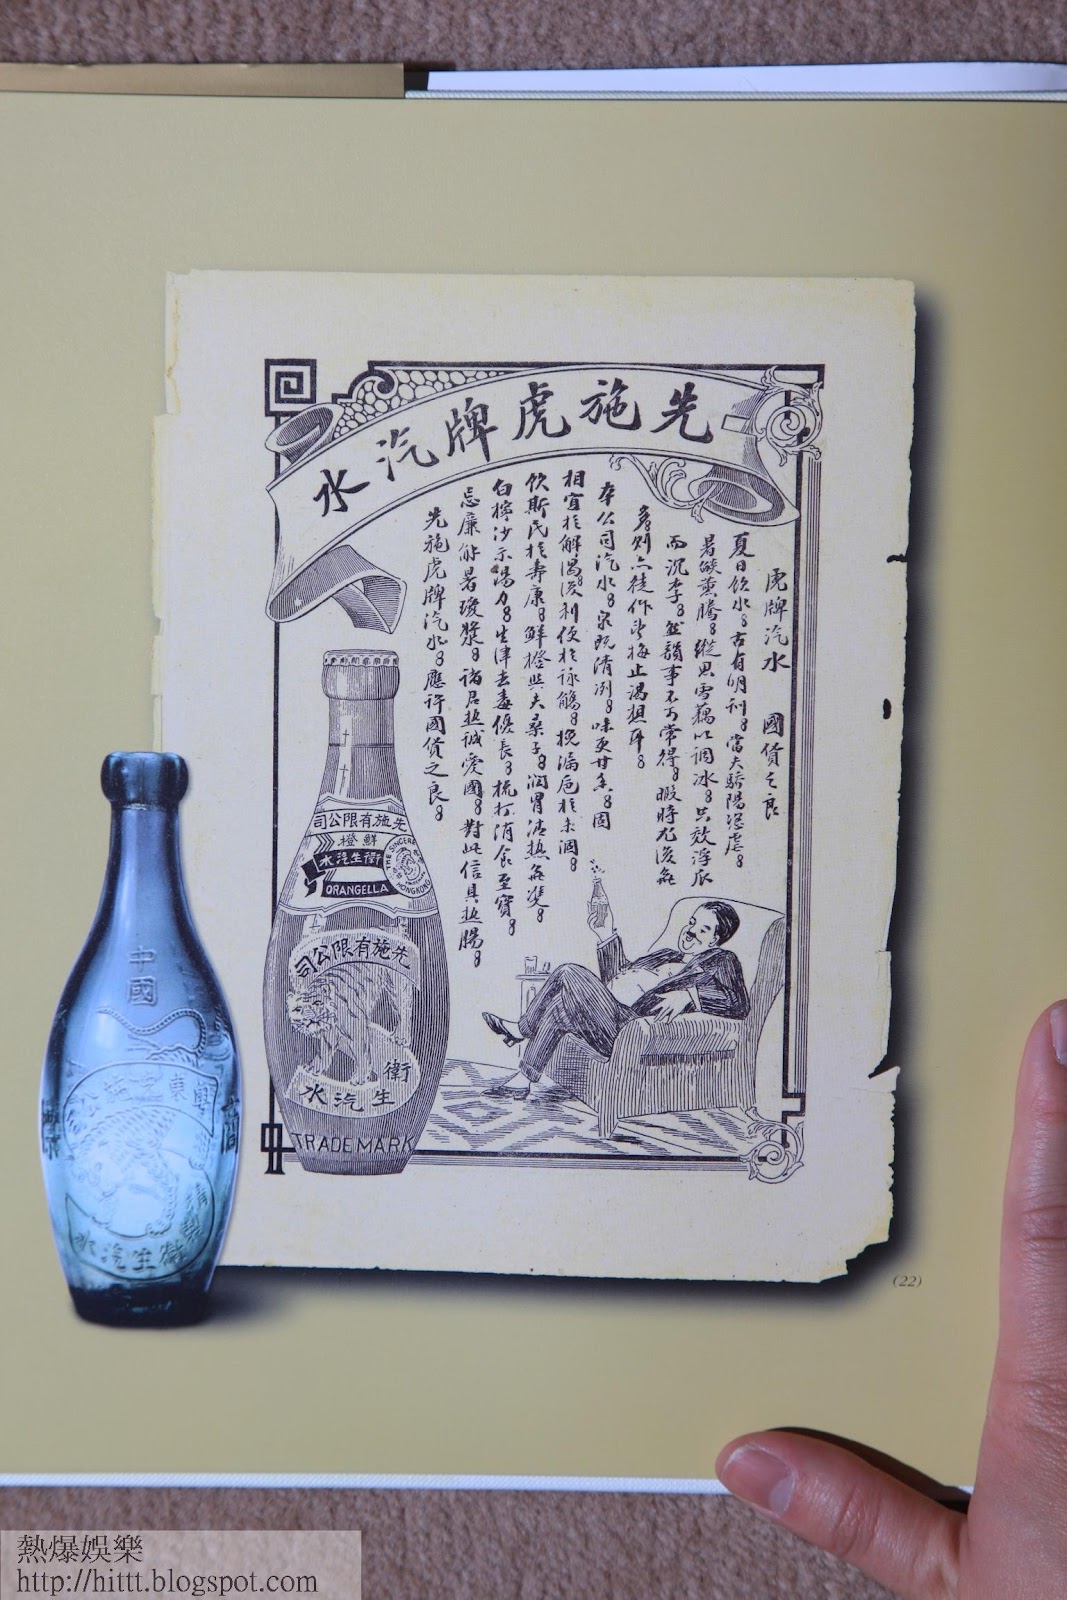 先施虎牌汽水
虎牌汽水 國貨之良
夏日飲水。古有明刊。當夫驕陽憑虐。
暑燄薰騰。縱思雪藕以調冰。共效浮瓜
而沉李。然韻事不可常得。暇時尤復無
多。則亦徒作望梅止渴想耳。
本公司汽水。泉既清冽。味更甘香。固
相宜於解渴。復利便於詠觴。挽漏卮於未涸。
飲斯民於壽康。鮮橙與夫桑子。潤胃清熱無雙。
白檸沙示湯力。生津去毒優長。梳打消食至寶。
忌廉解暑瓊漿。諸君熱誠愛國。對此信具熱腸。
先施虎牌汽水。應許國貨之良。
先施有限公司
鮮橙
衛生汽水
THE SINCERE
HONGKONG
ORANGELLA
先施有限公司
衛生汽水
TRADE MARK
中國
粵東先施公
商
衛生汽水
(22)
熱爆娛樂
http://hittt.blogspot.com